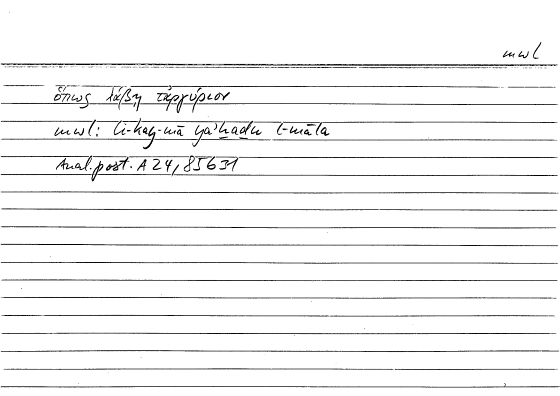 mwl
ὅπως λάβῃ τἀργύριον
mwl: li-kay-mā ya'ḫaḏu l-māla
Anal. post. A 24, 85b31